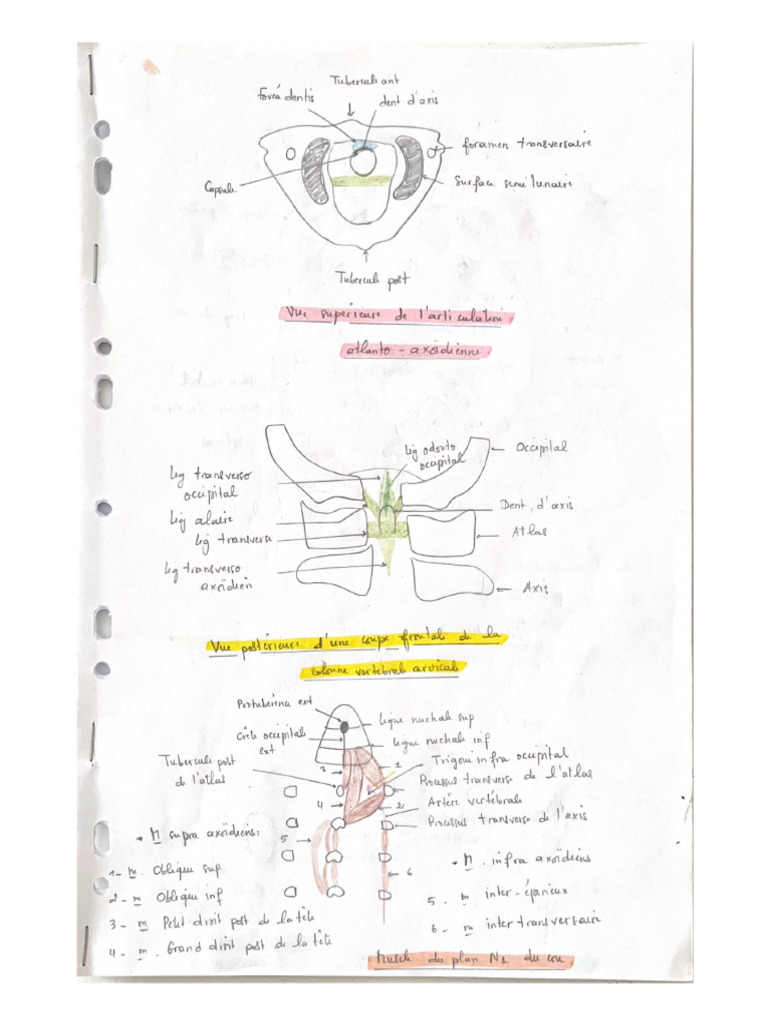 Tubercule ant
Fovéa dentis
dent d'axis
foramen transversaire
Capsule
Surface semi lunaire
Tubercule post
Vue supérieure de l'articulation
atlanto - axoïdienne
lig odonto
occipital
Occipital
lig transverso
occipital
Dent d'axis
lig alaire
lig transverse
Atlas
lig transverso
axoïdien
Axis
Vue postérieure d'une coupe frontale de la
colonne vertébrale cervicale
Protubérence ext
ligne nuchale sup
Crête occipitale
ext
ligne nuchale inf
Tubercule post
de l'atlas
3
1
Trigone infra occipital
Processus transverse de l'atlas
4
2
Artère vertébrale
Processus transverse de l'axis
• M supra axoïdiens:
5
• M. infra axoïdiens
1- m. Oblique sup
6
2- m Oblique inf
5. m inter-épineux
3 - m Petit droit post de la tête
6 - m inter transversaire
4 - m. Grand droit post de la tête
Muscle du plan N1 du cou